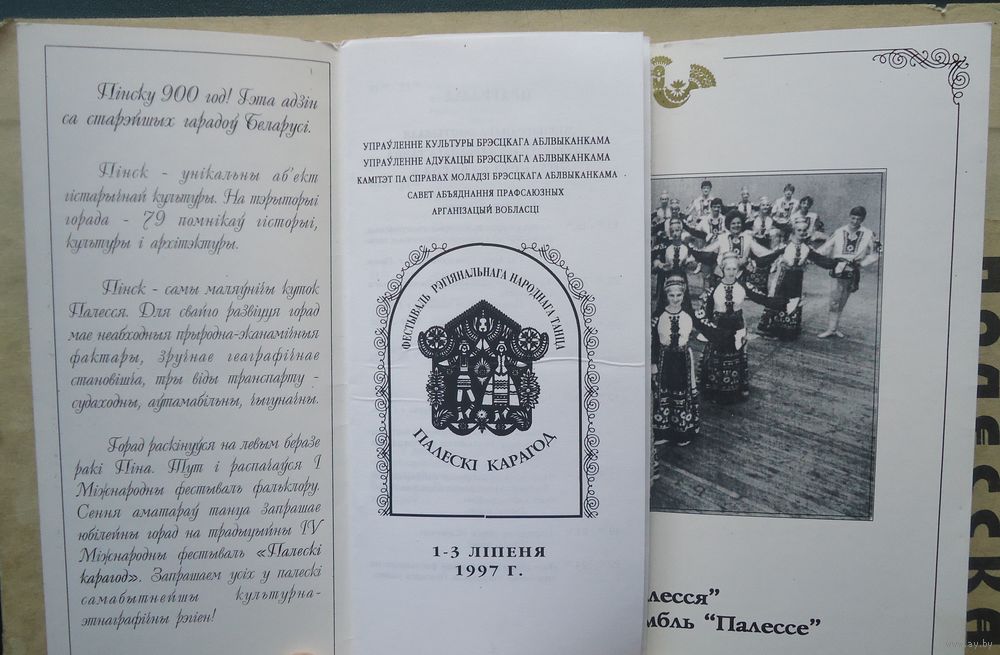 Пінску 900 год! Гэта адзін
са старэйшых гарадоў Беларусі.
Пінск - унікальны аб'ект
гістарычнай культуры. На тэрыторыі
горада - 79 помнікаў гісторыі,
культуры і архітэктуры.
Пінск - самы маляўнічы куток
Палесся. Для свайго развіцця горад
мае неабходныя прыродна-эканамічныя
фактары, зручнае геаграфічнае
становішча, тры віды транспарту -
судаходны, аўтамабільны, чыгуначны.
Горад раскінуўся на левым беразе
ракі Піна. Тут і распачаўся I
Міжнародны фестываль фальклору.
Сення аматараў танца запрашае
юбілейны горад на традыцыйны IV
Міжнародны фестываль «Палескі
карагод». Запрашаем усіх у палескі
самабытнейшы культурна-
этнаграфічны рэгіен!
УПРАЎЛЕННЕ КУЛЬТУРЫ БРЭСЦКАГА АБЛВЫКАНКАМА
УПРАЎЛЕННЕ АДУКАЦЫІ БРЭСЦКАГА АБЛВЫКАНКАМА
КАМІТЭТ ПА СПРАВАХ МОЛАДЗІ БРЭСЦКАГА АБЛВЫКАНКАМА
САВЕТ АБЪЯДНАННЯ ПРАФСАЮЗНЫХ
АРГАНІЗАЦЫЙ ВОБЛАСЦІ
ФЕСТЫВАЛЬ РЭГІЯНАЛЬНАГА НАРОДНАГА ТАНЦА
ПАЛЕСКІ КАРАГОД
1-3 ЛІПЕНЯ
1997 Г.
лесся”
мбль “Палессе”
www.ay.by